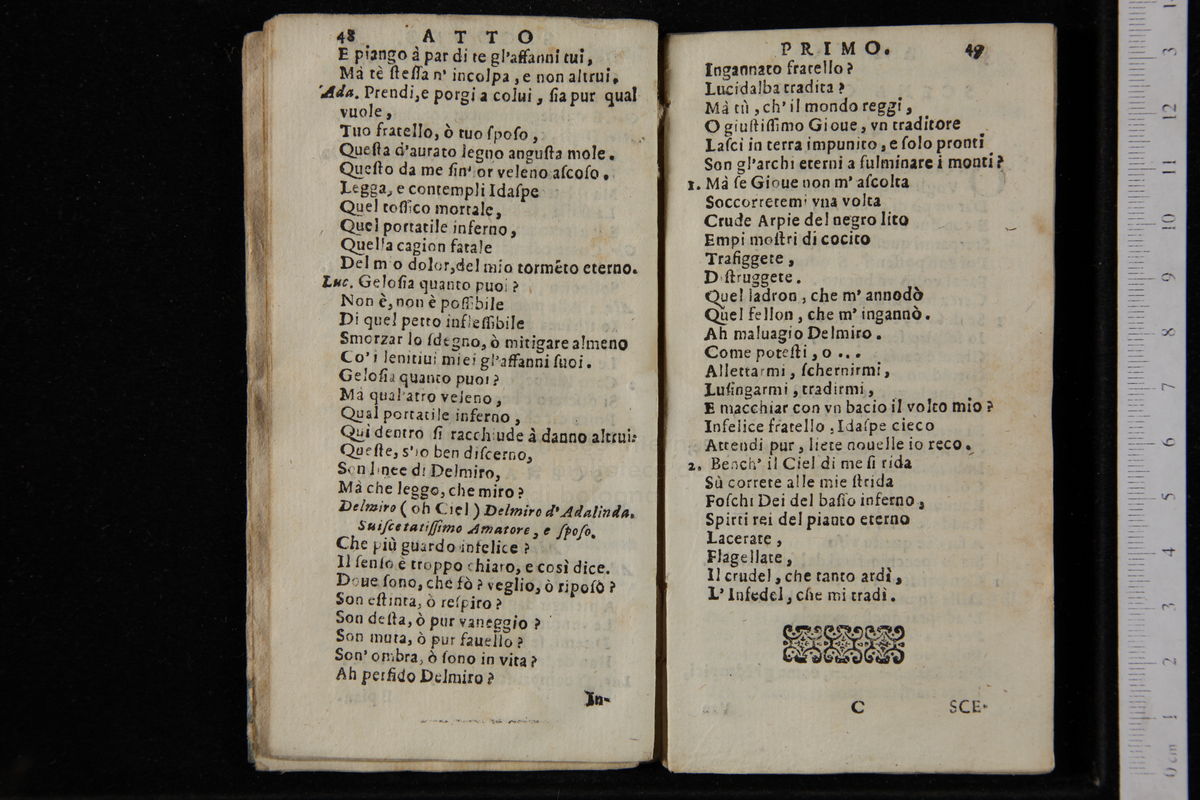 48 ATTO
E piango à par di te gl'affanni tui,
Mà tè ſteſſa n' incolpa, e non altrui.
Ada. Prendi, e porgi a colui, ſia pur qual
vuole,
Tuo fratello, ò tuo ſpoſo,
Queſta d'aurato legno anguſta mole.
Queſto da me ſin' or veleno aſcoſo.
Legga, e contempli Idaſpe
Quel toſſico mortale,
Quel portatile inferno,
Quella cagion fatale
Del mio dolor, del mio tormēto eterno.
Luc. Geloſia quanto puoi?
Non è, non è poſſibile
Di quel petto infleſſibile
Smorzar lo ſdegno, ò mitigare almeno
Co'i lenitiui miei gl'affanni ſuoi.
Geloſia quanto puoi?
Mà qual'atro veleno,
Qual portatile inferno,
Quì dentro ſi racchiude à danno altrui?
Queſte, s'io ben diſcerno,
Son linee di Delmiro,
Mà che leggo, che miro?
Delmiro (oh Ciel) Delmiro d'Adalinda.
Suiſcetatiſſimo Amatore, e ſpoſo.
Che più guardo infelice?
Il ſenſo è troppo chiaro, e così dice.
Doue ſono, che fò? veglio, ò ripoſò?
Son eſtinta, ò reſpiro?
Son deſta, ò pur vaneggio?
Son muta, ò pur fauello?
Son' ombra, ò ſono in vita?
Ah perfido Delmiro?
In-
PRIMO. 49
Ingannato fratello?
Lucidalba tradita?
Mà tù, ch' il mondo reggi,
O giuſtiſſimo Gioue, vn traditore
Laſci in terra impunito, e ſolo pronti
Son gl'archi eterni a fulminare i monti?
1. Mà ſe Gioue non m' aſcolta
Soccorretemi vna volta
Crude Arpie del negro lito
Empi moſtri di cocito
Trafiggete,
Diſtruggete.
Quel ladron, che m' annodò
Quel fellon, che m' ingannò.
Ah maluagio Delmiro.
Come poteſti, o ...
Allettarmi, ſchernirmi,
Luſingarmi, tradirmi,
E macchiar con vn bacio il volto mio?
Infelice fratello, Idaſpe cieco
Attendi pur, liete nouelle io reco.
2. Bench' il Ciel di me ſi rida
Sù correte alle mie ſtrida
Foſchi Dei del baſſo inferno,
Spirti rei del pianto eterno
Lacerate,
Flagellate,
Il crudel, che tanto ardì,
L' Infedel, che mi tradì.
C SCE-
0 cm 1 2 3 4 5 6 7 8 9 10 11 12